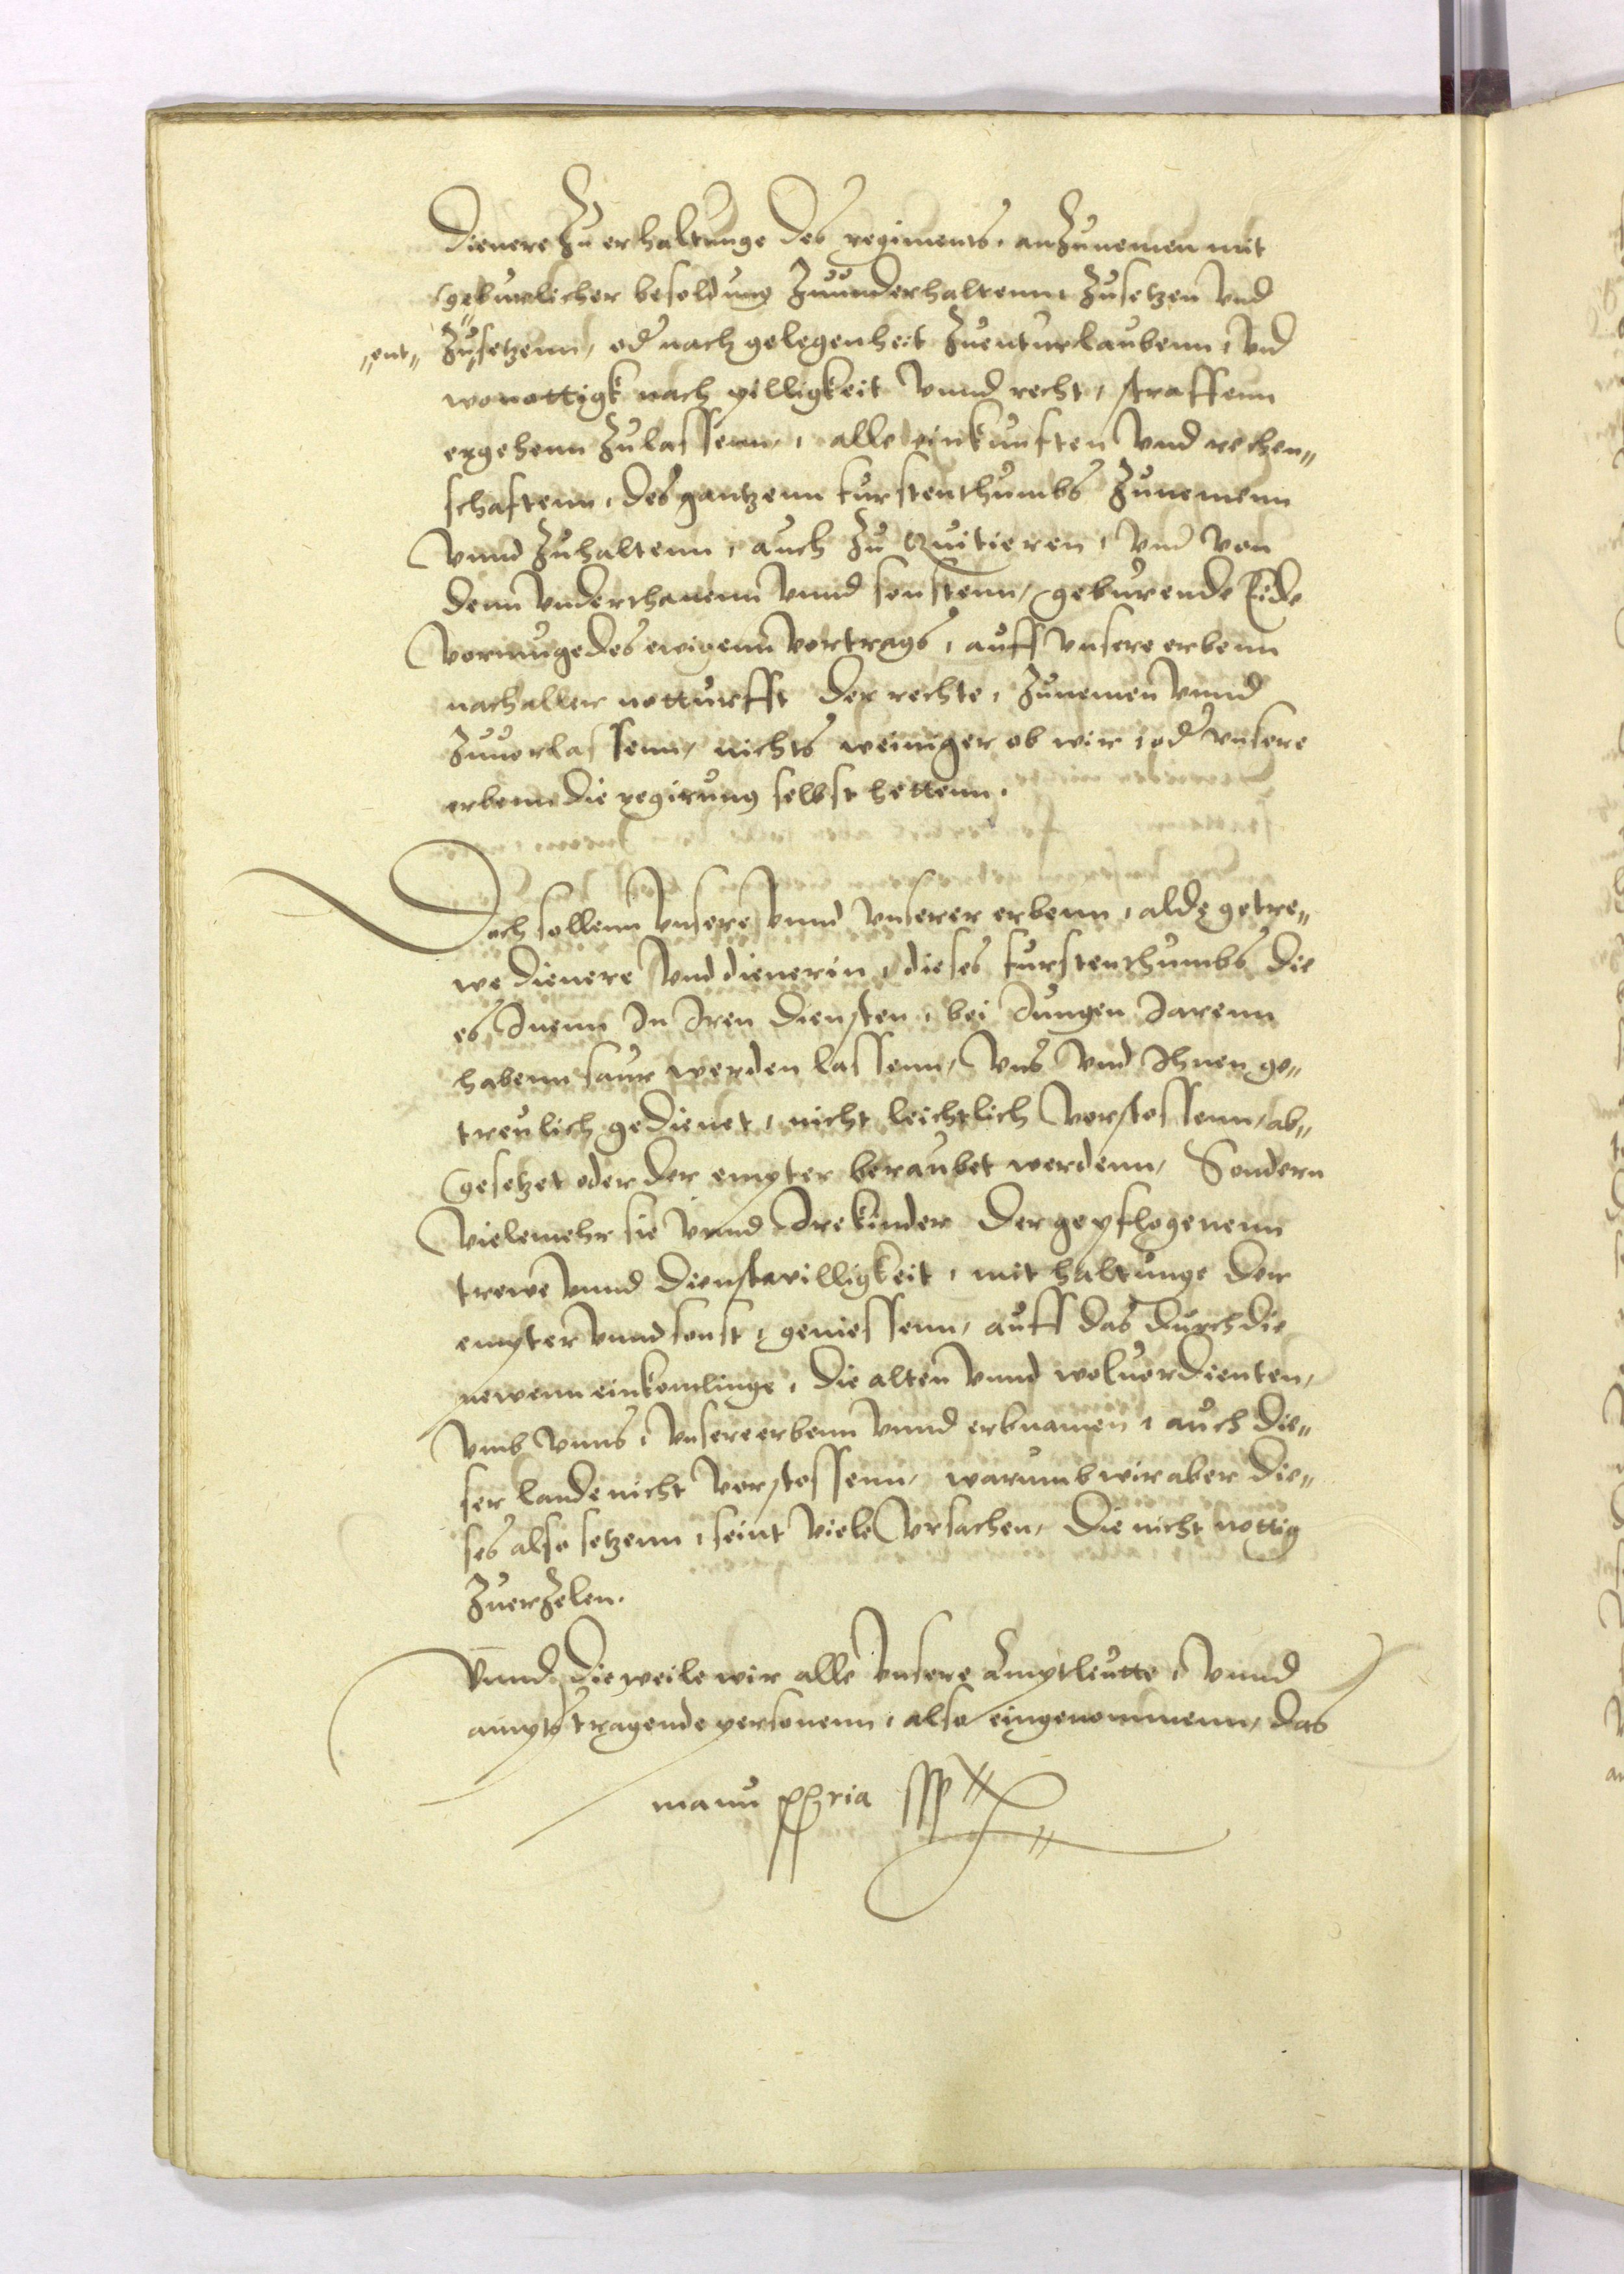 dienere zu erhaltunge des regiments, anzunemen mit
geburlicher besoldung zuunderhaltenn, zusetzen vnd
"ent" zu"setzenn, od nach gelegenheit zuenturlaubenn, vnd
wonottigk nach pilligkeit vnnd recht, straffenn
ergehenn zulassenn, alle einkunfften vnd rechen"
schafftenn, des gantzenn furstenthumbs zunemenn
vnnd zuhaltenn, auch zu Quitieren, vnd von
denn vnderthanenn vnnd sonstenn, geburende Eide
vormuge des ewigenn vortrags, auff vnsere erbenn
nach aller notturfft der rechte, zunemen vnnd
zuuorlassenn, nichts weiniger ob wir, od vnsere
erbenn die regirung selbst hettenn.
Doch sollenn vnsere vnnd vnserer erbenn, alde getre"
we dienere vnd dienerin, dieses furstenthumbs die
es Inenn In Iren diensten, bei Jungen Jarenn
habenn saur werden lassenn, vns vnd Ihnen ge"
treulich gedienet, nicht leichtlich vorstossenn, ab"
gesetzet oder der empter beraubet werdenn, Sondern
vielemehr sie vnnd Ire kinder der gepflogenenn
trewe vnnd dienstwilligkeit, mit haltunge der
empter vnnd sonst, geniessenn, auff das durch die
newenn einkomlinge, die alten vnnd woluordienten,
vmb vnns, vnsere erbenn vnnd erbnamen, auch die"
ser lande nicht vorstossenn, warumb wir aber die"
ses also setzenn, seint viele vrsachen, die nicht nottig
zuerzelen.
Vnnd dieweile wir alle vnsere Amptleutte, vnnd
ampts tragende personenn, also eingenommenn, das
manu ppria sspt